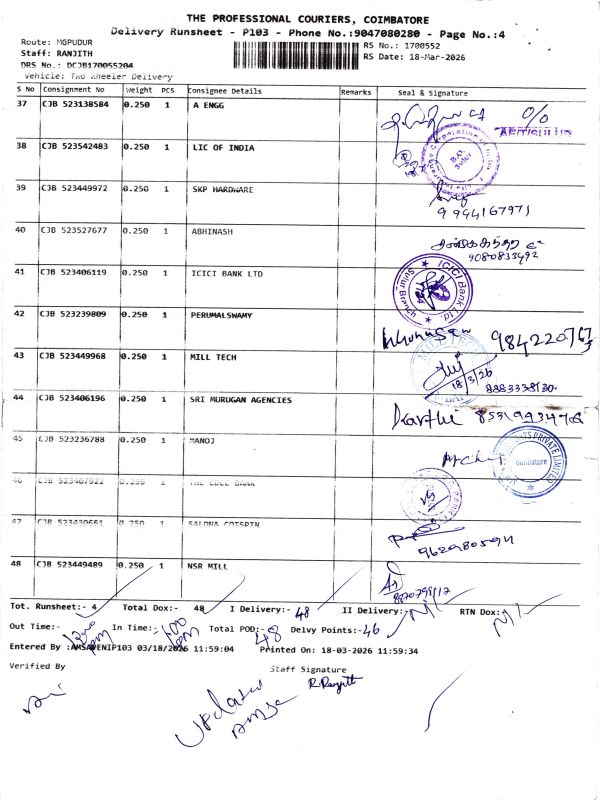 THE PROFESSIONAL COURIERS, COIMBATORE
Delivery Runsheet - P103 - Phone No.:9047080280 - Page No.:4
Route: MGPUDUR
RS No.: 1700552
Staff: RANJITH
RS Date: 18-Mar-2026
DRS No.: DCJB170055204
Vehicle: Two Wheeler Delivery
S No Consignment No Weight PCS Consignee Details Remarks Seal & Signature
37 CJB 523138584 0.250 1 A ENGG
38 CJB 523542483 0.250 1 LIC OF INDIA
39 CJB 523449972 0.250 1 SKP HARDWARE
9994167971
40 CJB 523527677 0.250 1 ABHINASH
9080833492
41 CJB 523406119 0.250 1 ICICI BANK LTD
ICICI Bank Ltd.
Sulur-Branch
42 CJB 523239809 0.250 1 PERUMALSWAMY
43 CJB 523449968 0.250 1 MILL TECH
18/3/26
44 CJB 523406196 0.250 1 SRI MURUGAN AGENCIES
Karthi
45 CJB 523236788 0.250 1 MANOJ
PRIVATE LIMITED
Coimbatore
46 CJB 523407922 0.250 1 THE EDEC BANK
47 CJB 523430661 0.250 1 SALONA COTSPIN
9629805911
48 CJB 523449489 0.250 1 NSR MILL
Tot. Runsheet:- 4 Total Dox:- 48 I Delivery:- 48 II Delivery:- Nil RTN Dox: Nil
Out Time:- In Time:- Total POD:- 48 Delvy Points:- 46
Entered By :AMSAVENIP103 03/18/2026 11:59:04 Printed On: 18-03-2026 11:59:34
Verified By
Staff Signature
R. Ranjith
updated